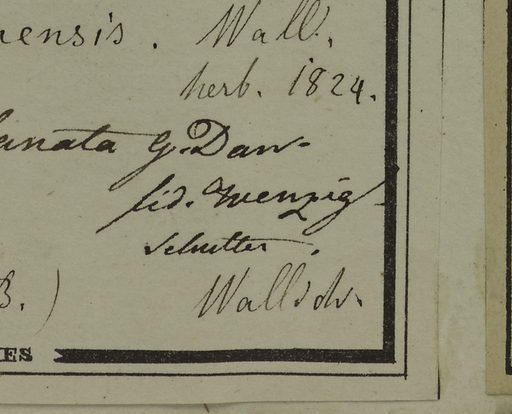 nensis. Wall.
herb. 1824.
lanata G. Dan-
fid. Wenzig
Schutter.
B.)
ES